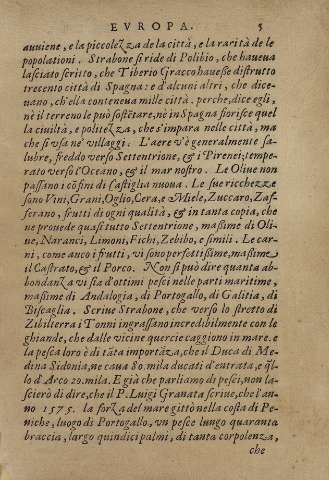 EVROPA. 5
auuiene, e la piccolezza de la città, e la rarità de le
popolationi. Strabone si ride di Polibio, che haueua
lasciato scritto, che Tiberio Gracco hauesse distrutto
trecento città di Spagna: e d'alcuni altri, che dice-
uano, ch'ella conteneua mille città. perche, dice egli,
nè il terreno le può sostẽtare, nè in Spagna fiorisce quel
la ciuiltà, e politezza, che s'impara nelle città, ma
che si vsa ne' villaggi. L'aere v'è generalmente sa-
lubre, freddo verso Settentrione, & i Pirenei; tempe-
rato verso l'Oceano, & il mar nostro. Le Oliue non
passano i cõfini di Castiglia nuoua. Le sue ricchezze
sono Vini, Grani, Oglio, Cera, e Miele, Zuccaro, Zaf-
ferano, frutti di ogni qualità, & in tanta copia, che
ne prouede quasi tutto Settentrione, massime di Oli-
ue, Naranci, Limoni, Fichi, Zebibo, e simili. Le car-
ni, come anco i frutti, vi sono perfettissime, massime
il Castrato, & il Porco. Non si può dire quanta ab-
bondanza vi sia d'ottimi pesci nelle parti maritime,
massime di Andalogia, di Portogallo, di Galitia, di
Biscaglia. Scriue Strabone, che verso lo stretto di
Zibilterra i Tonni ingrassano incredibilmente con le
ghiande, che dalle vicine quercie caggiono in mare. e
la pesca loro è di tãta importãza, che il Duca di Me-
dina Sidonia, ne caua 80. mila ducati d'entrata, e q̃l-
lo d'Arco 20. mila. E già che parliamo di pesci, non la-
scierò di dire, che il P. Luigi Granata scriue, che l'an-
no 1575. la forza del mare gittò nella costa di Pe-
niche, luogo di Portogallo, vn pesce lungo quaranta
braccia, largo quindici palmi, di tanta corpolenza,
che